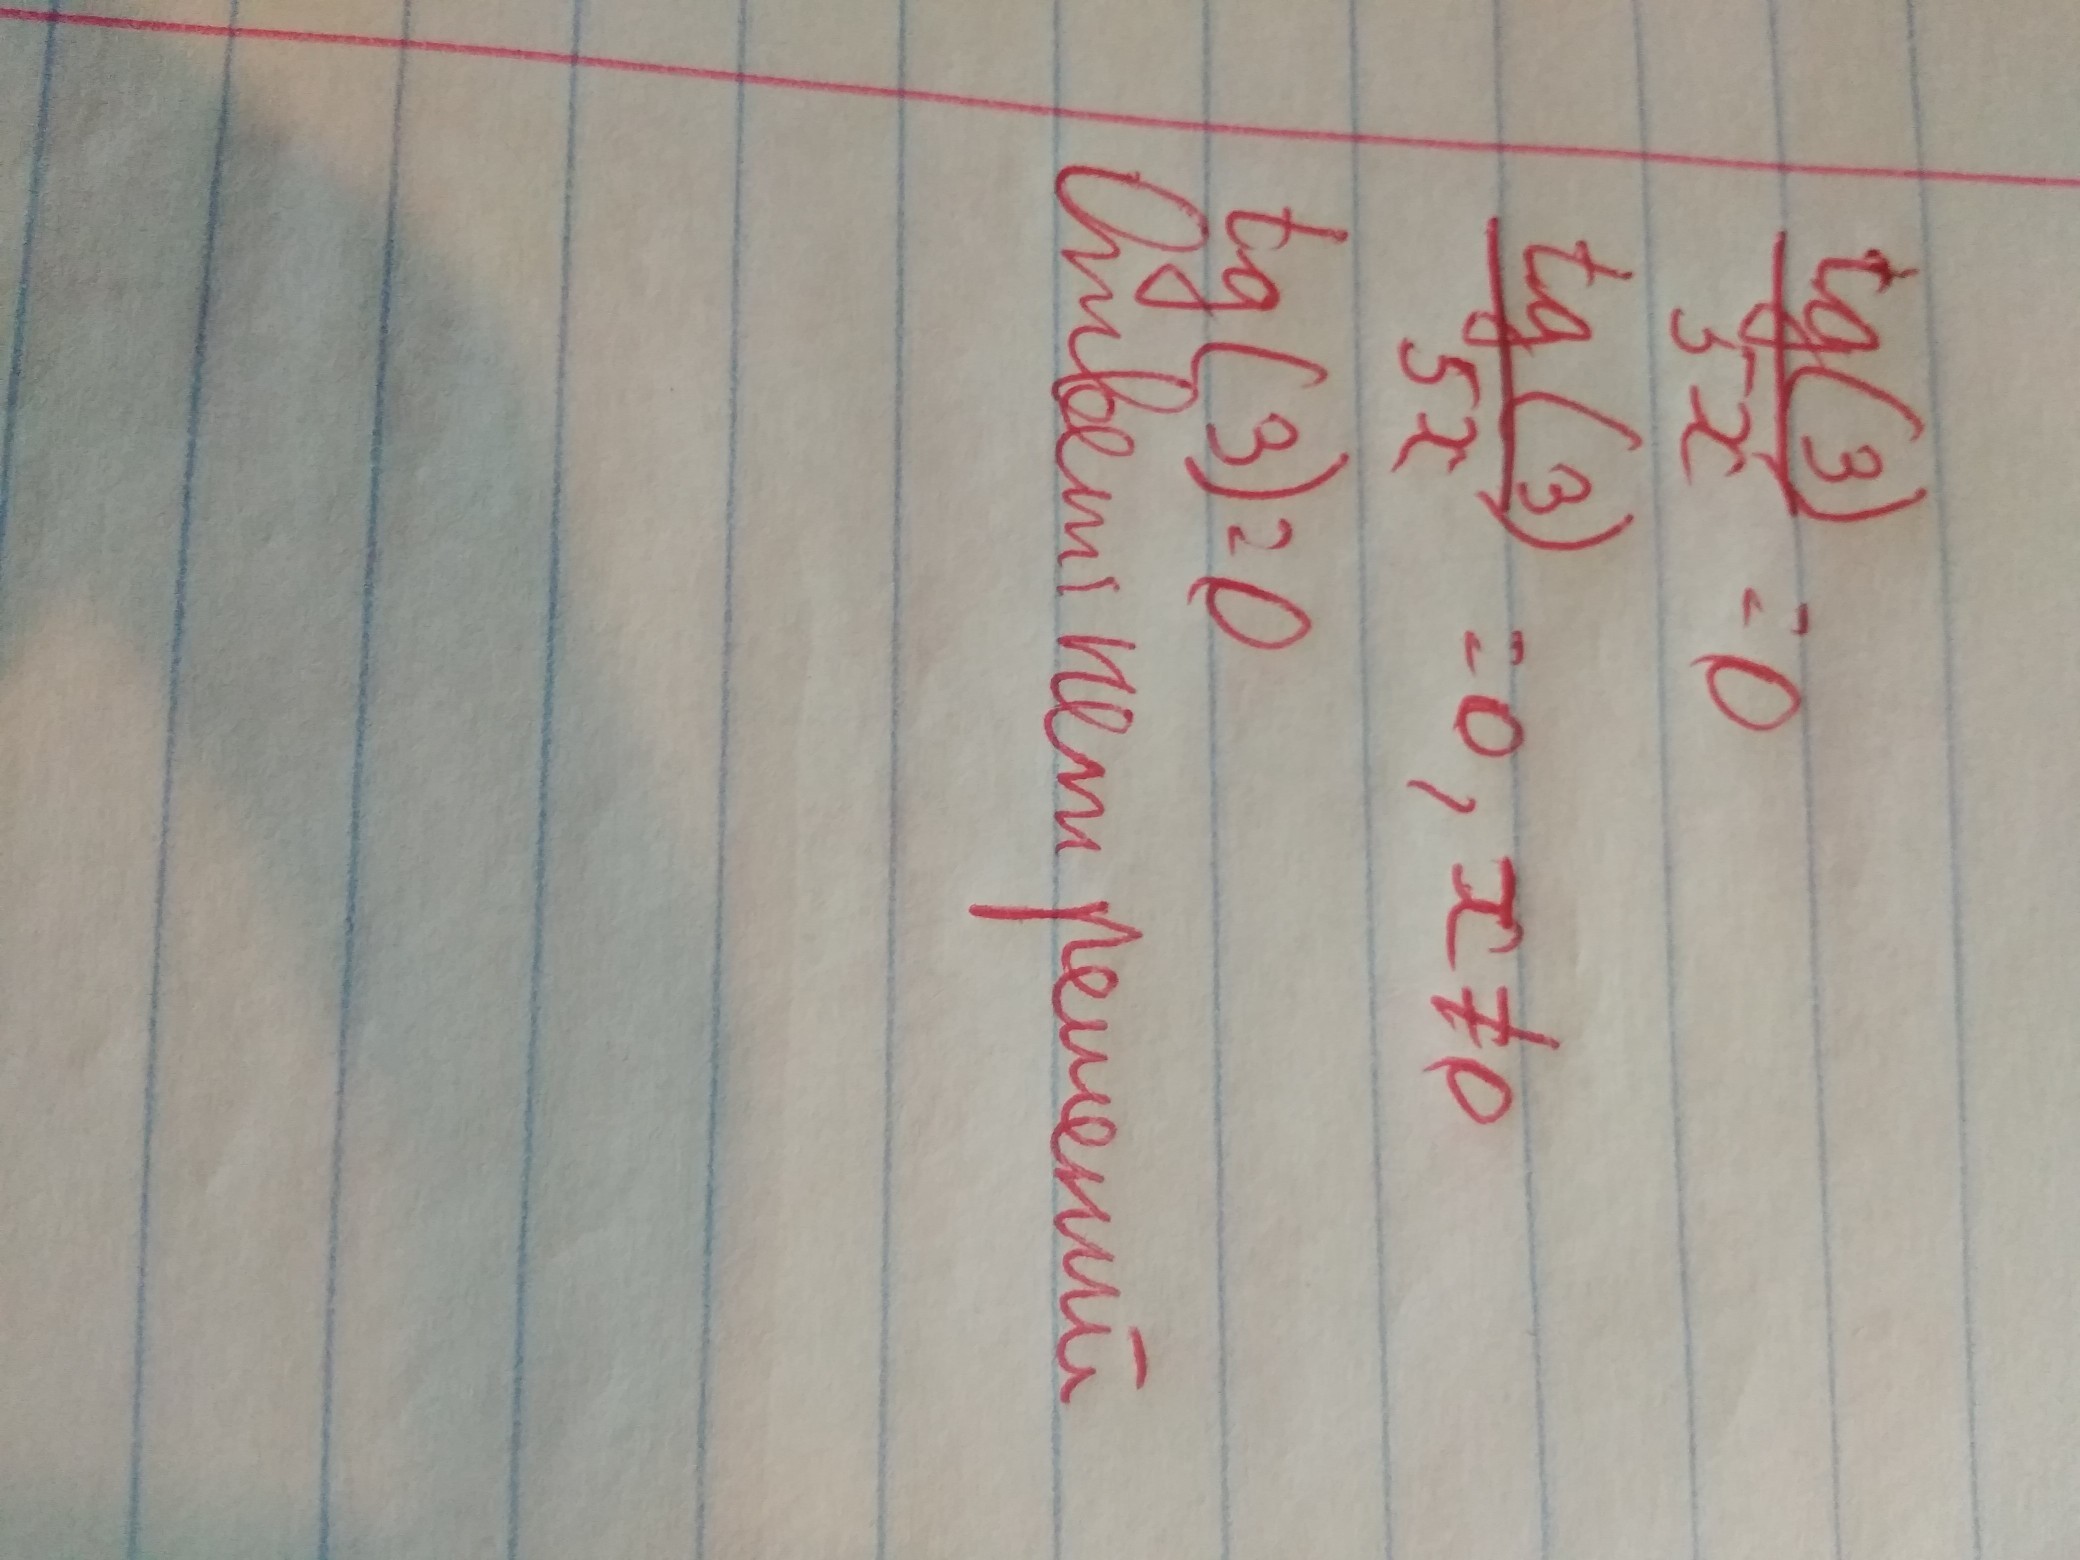 tg(3)
5x
=0
tg(3)
5x
=0, x≠0
tg(3)=0
Ответ: нет решений